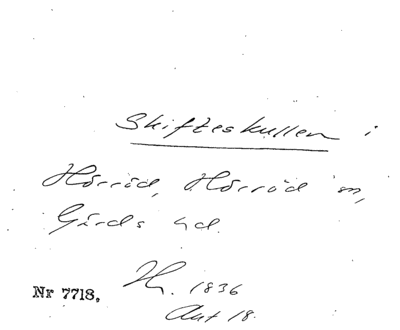 Skifteskullen i
Hörröd, Hörröd sn,
Gärds hd.
Nr 7718.
H. 1836
Akt 18.